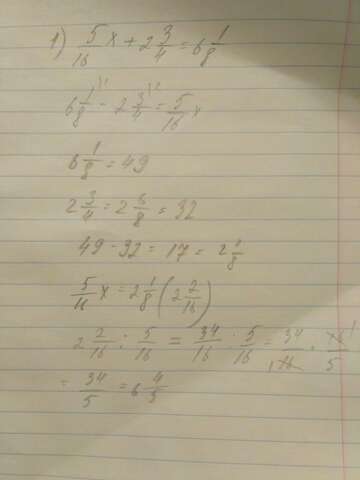 1) 5/16 x + 2 3/4 = 6 1/8
6 1/8 - 2 3/4 = 5/16 x
6 1/8 = 49
2 3/4 = 2 6/8 = 32
49 - 32 = 17 = 2 1/8
5/16 x = 2 1/8 (2 2/16)
2 2/16 : 5/16 = 34/16 : 5/16 = 34/16 · 16/5
= 34/5 = 6 4/5